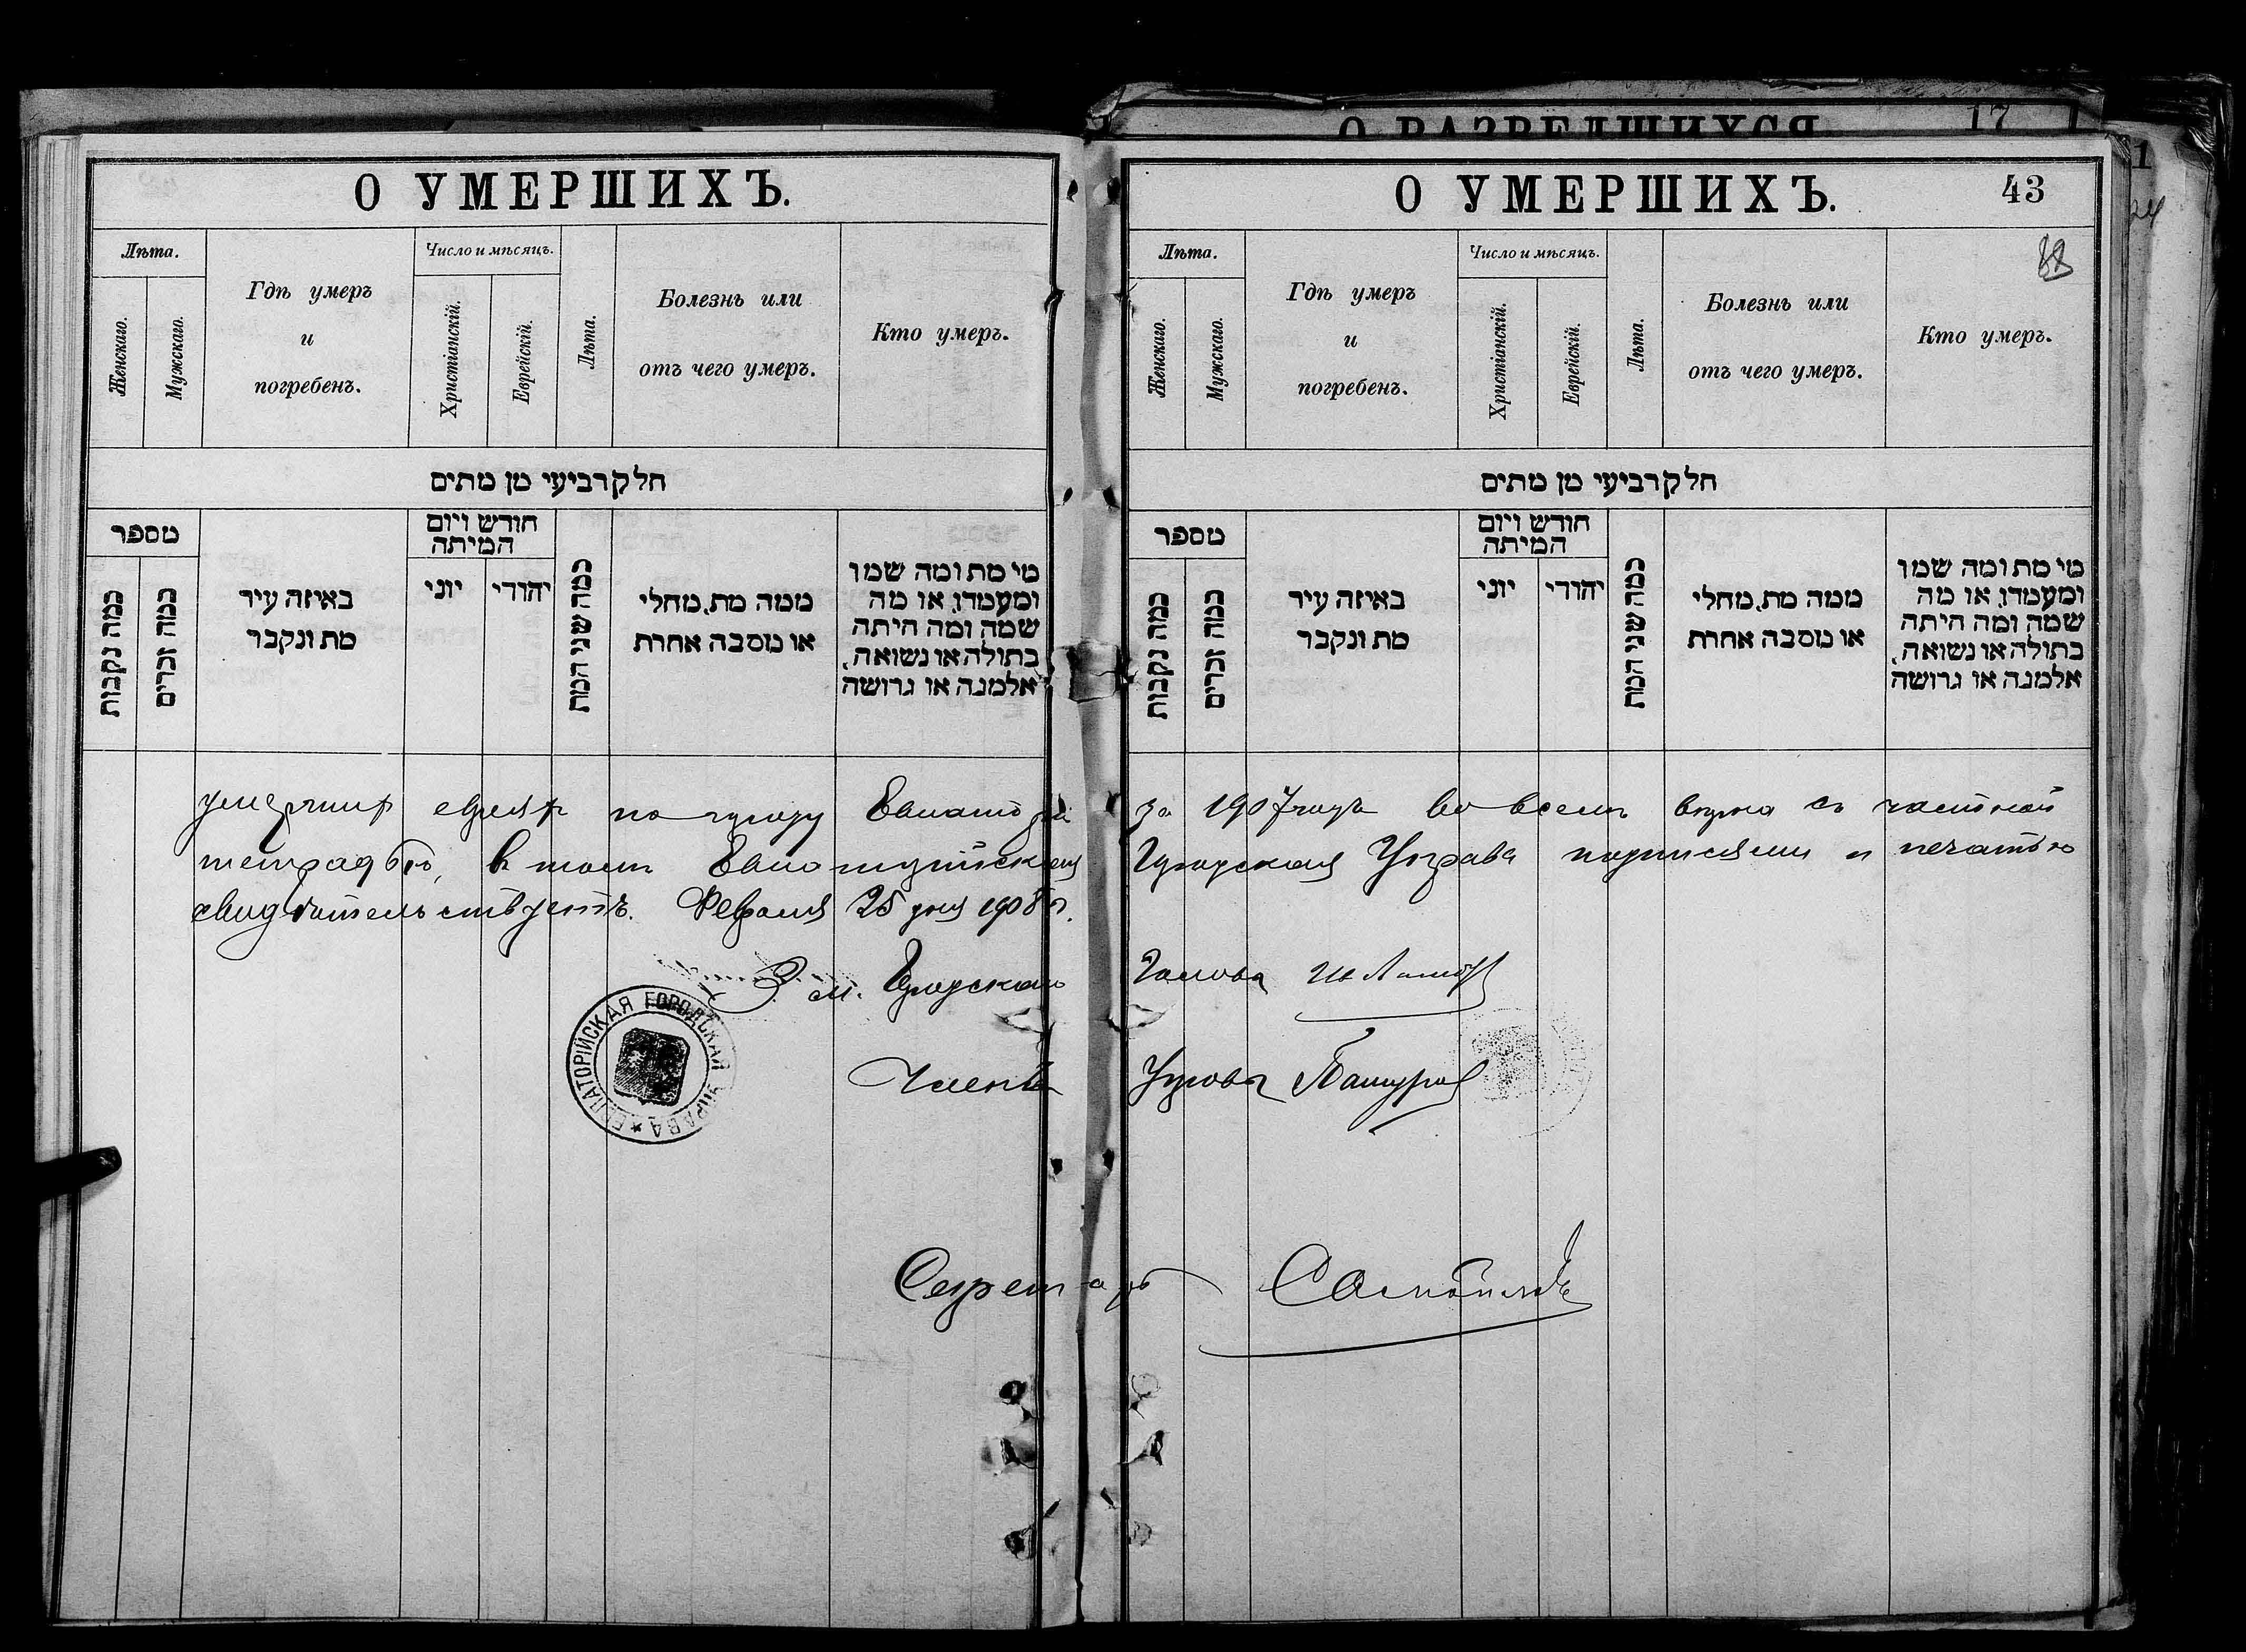 О РАЗВЕДШИХСЯ. 17
1
О УМЕРШИХЪ.
Лѣта.
Женскаго.
Мужскаго.
Гдѣ умеръ
и
погребенъ.
Число и мѣсяцъ.
Христіанскій.
Еврейскій.
Лѣта.
Болезнь или
отъ чего умеръ.
Кто умеръ.
חלק רביעי מן מתים
מספר
כמה נקבות
כמה זכרים
באיזה עיר
מת ונקבר
חודש ויום
המיתה
יוני
יהודי
כמה שני המת
ממה מת, מחלי
או מסבה אחרת
מי מת ומה שמו
ומעמדו, או מה
שמה ומה היתה
בתולה או נשואה,
אלמנה או גרושה
О УМЕРШИХЪ. 43
Лѣта.
Женскаго.
Мужскаго.
Гдѣ умеръ
и
погребенъ.
Число и мѣсяцъ.
Христіанскій.
Еврейскій.
Лѣта.
Болезнь или
отъ чего умеръ.
Кто умеръ.
חלק רביעי מן מתים
מספר
כמה נקבות
כמה זכרים
באיזה עיר
מת ונקבר
חודש ויום
המיתה
יוני
יהודי
כמה שני המת
ממה מת, מחלי
או מסבה אחרת
מי מת ומה שמו
ומעמדו, או מה
שמה ומה היתה
בתולה או נשואה,
אלמנה או גרושה
умершихъ евреяхъ по городу Евпаторіи за 1907 годъ во всемъ вѣрна съ частной
тетрадью, въ томъ Евпаторійская Городская Управа подписями и печатью
свидѣтельствуетъ. Февраля 25 дня 1908 г.
Городского Голова
ЕВПАТОРІЙСКАЯ ГОРОДСКАЯ УПРАВА
Члены Управы
Секретарь